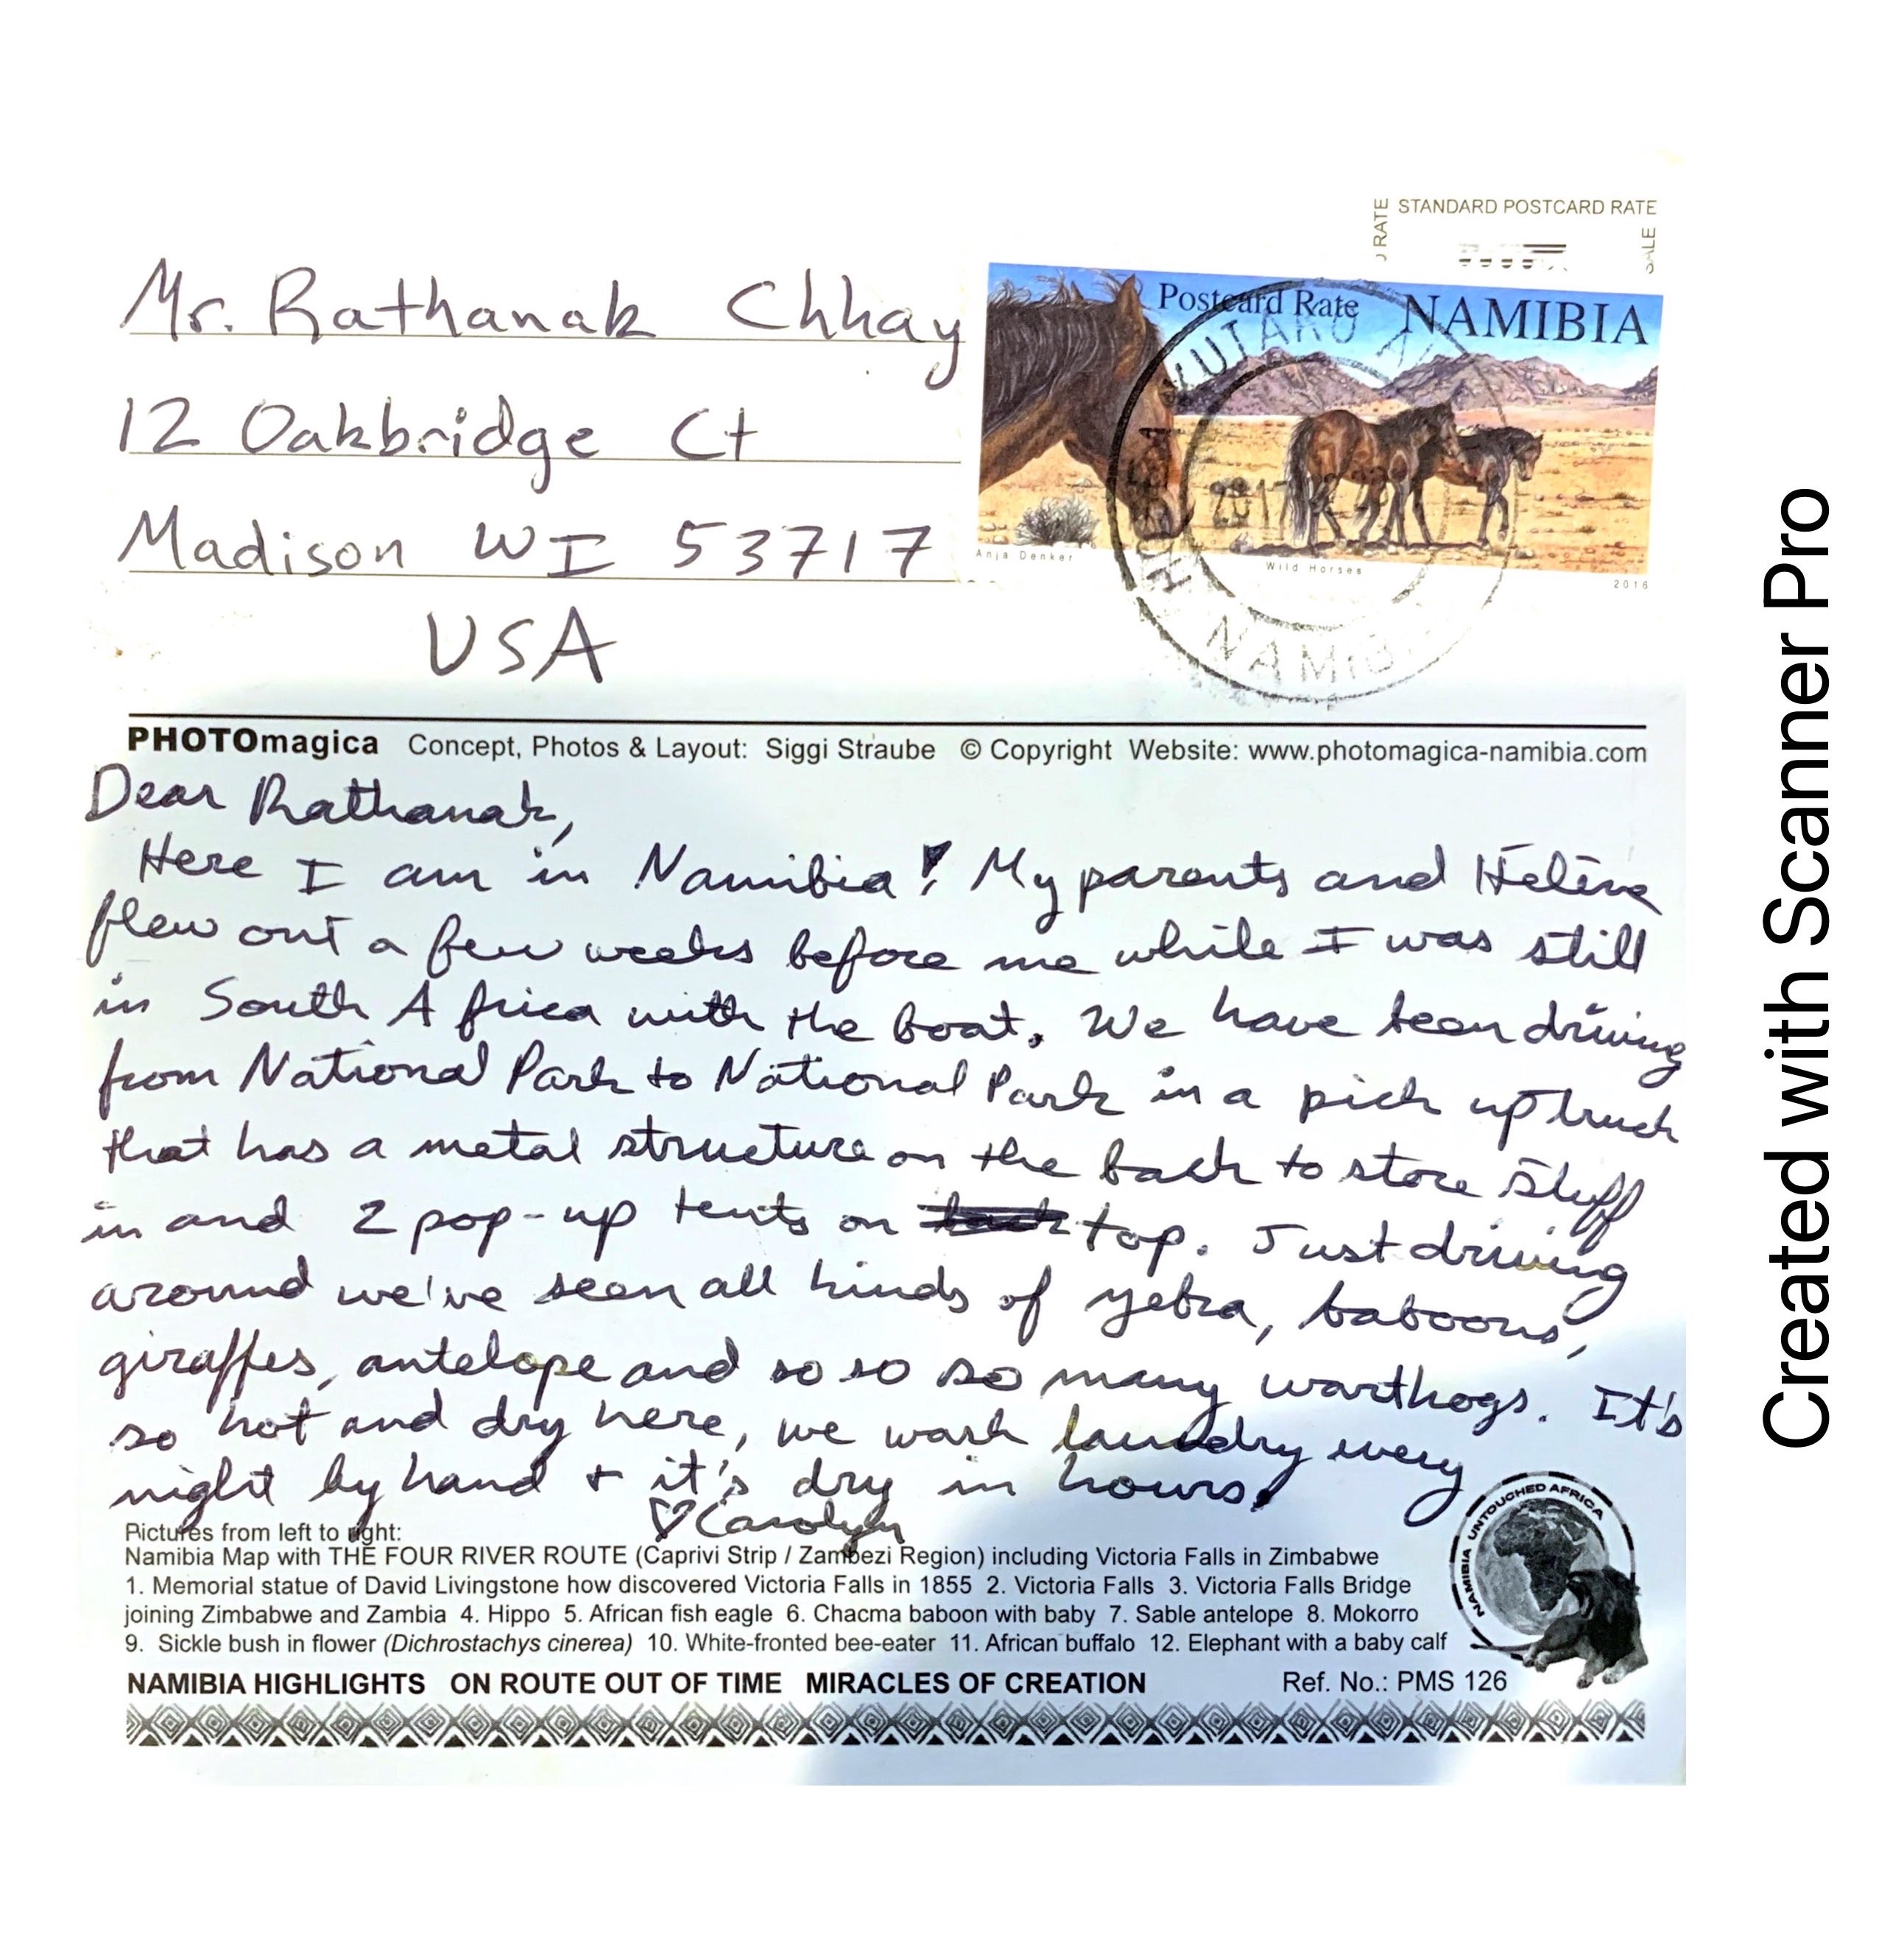 STANDARD POSTCARD RATE
Mr. Rathanak Chhay
12 Oakbridge Ct
Madison WI 53717
USA
Postcard Rate NAMIBIA
Anja Denker
Wild Horses
2016
2017
NAMIB
PHOTOmagica Concept, Photos & Layout: Siggi Straube © Copyright Website: www.photomagica-namibia.com
Dear Rathanak,
Here I am in Namibia! My parents and Hélène
flew out a few weeks before me while I was still
in South Africa with the boat. We have been driving
from National Park to National Park in a pick up truck
that has a metal structure on the back to store stuff
in and 2 pop-up tents on top. Just driving
around we've seen all kinds of zebra, baboons,
giraffes, antelope and so so so many warthogs. It's
so hot and dry here, we wash laundry every
night by hand + it's dry in hours!
♡Carolyn
Pictures from left to right:
Namibia Map with THE FOUR RIVER ROUTE (Caprivi Strip / Zambezi Region) including Victoria Falls in Zimbabwe
1. Memorial statue of David Livingstone how discovered Victoria Falls in 1855 2. Victoria Falls 3. Victoria Falls Bridge
joining Zimbabwe and Zambia 4. Hippo 5. African fish eagle 6. Chacma baboon with baby 7. Sable antelope 8. Mokorro
9. Sickle bush in flower (Dichrostachys cinerea) 10. White-fronted bee-eater 11. African buffalo 12. Elephant with a baby calf
NAMIBIA UNTOUCHED AFRICA
NAMIBIA HIGHLIGHTS ON ROUTE OUT OF TIME MIRACLES OF CREATION Ref. No.: PMS 126
Created with Scanner Pro